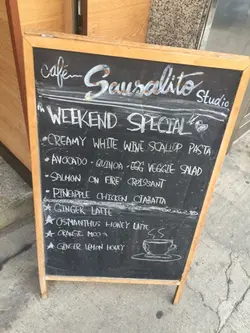 café
Sausalito
Studio
"WEEKEND SPECIAL"
• CREAMY WHITE WINE SCALLOP PASTA
• AVOCADO - QUINOA - EGG VEGGIE SALAD
• SALMON ON FIRE CROISSANT
• PINEAPPLE CHICKEN CIABATTA
★ GINGER LATTE
★ OSMANTHUS HONEY LATTE
★ ORANGE MOCHA
★ GINGER LEMON HONEY